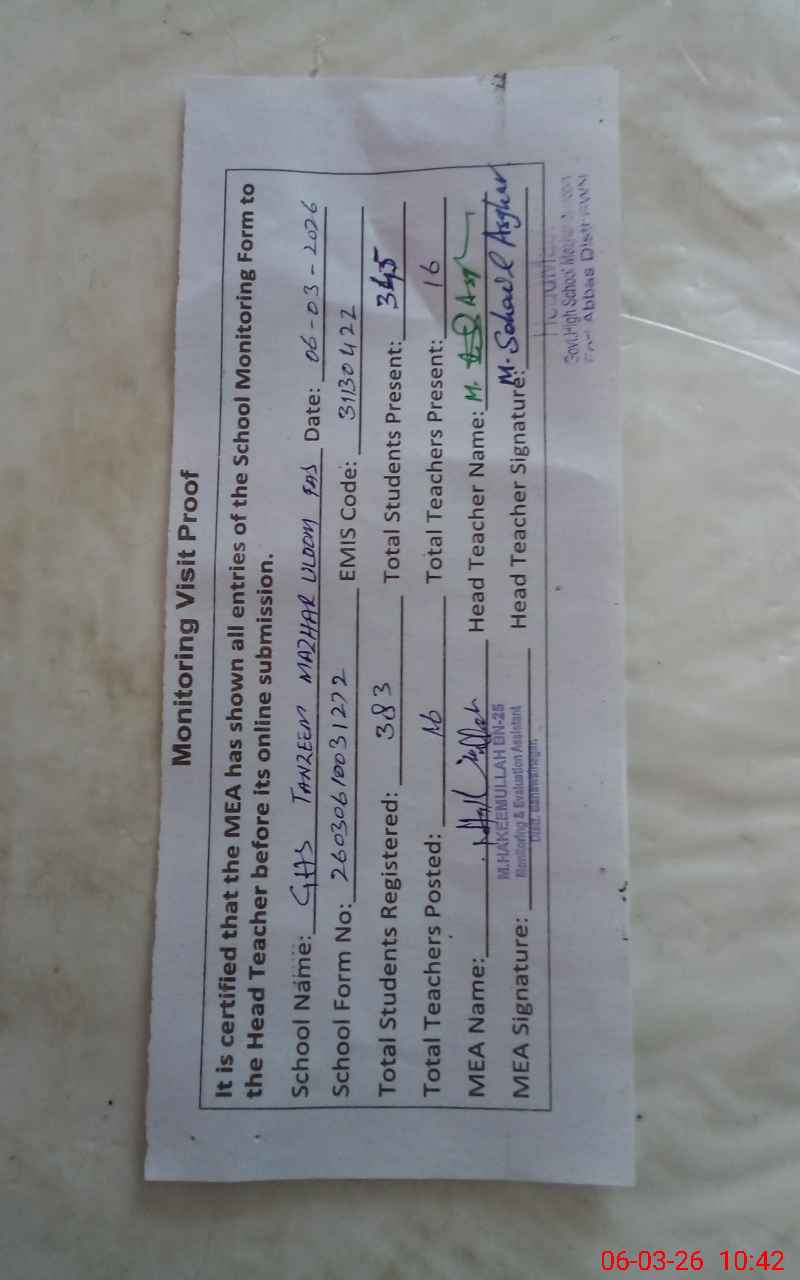 Monitoring Visit Proof
It is certified that the MEA has shown all entries of the School Monitoring Form to
the Head Teacher before its online submission.
School Name: GHS TANZEEM MAZHAR ULOOM FAS Date: 06-03-2026
School Form No: 26030610031272 EMIS Code: 31130422
Total Students Registered: 383 Total Students Present: 345
Total Teachers Posted: 16 Total Teachers Present: 16
MEA Name: Head Teacher Name: M.
MEA Signature: Head Teacher Signature: M. Sohail Asghar
M.HAKEEMULLAH BN-25
Monitoring & Evaluation Assistant
Distt. Bahawalnagar
Govt. High School
Fort Abbas Distt: BWN
06-03-26 10:42